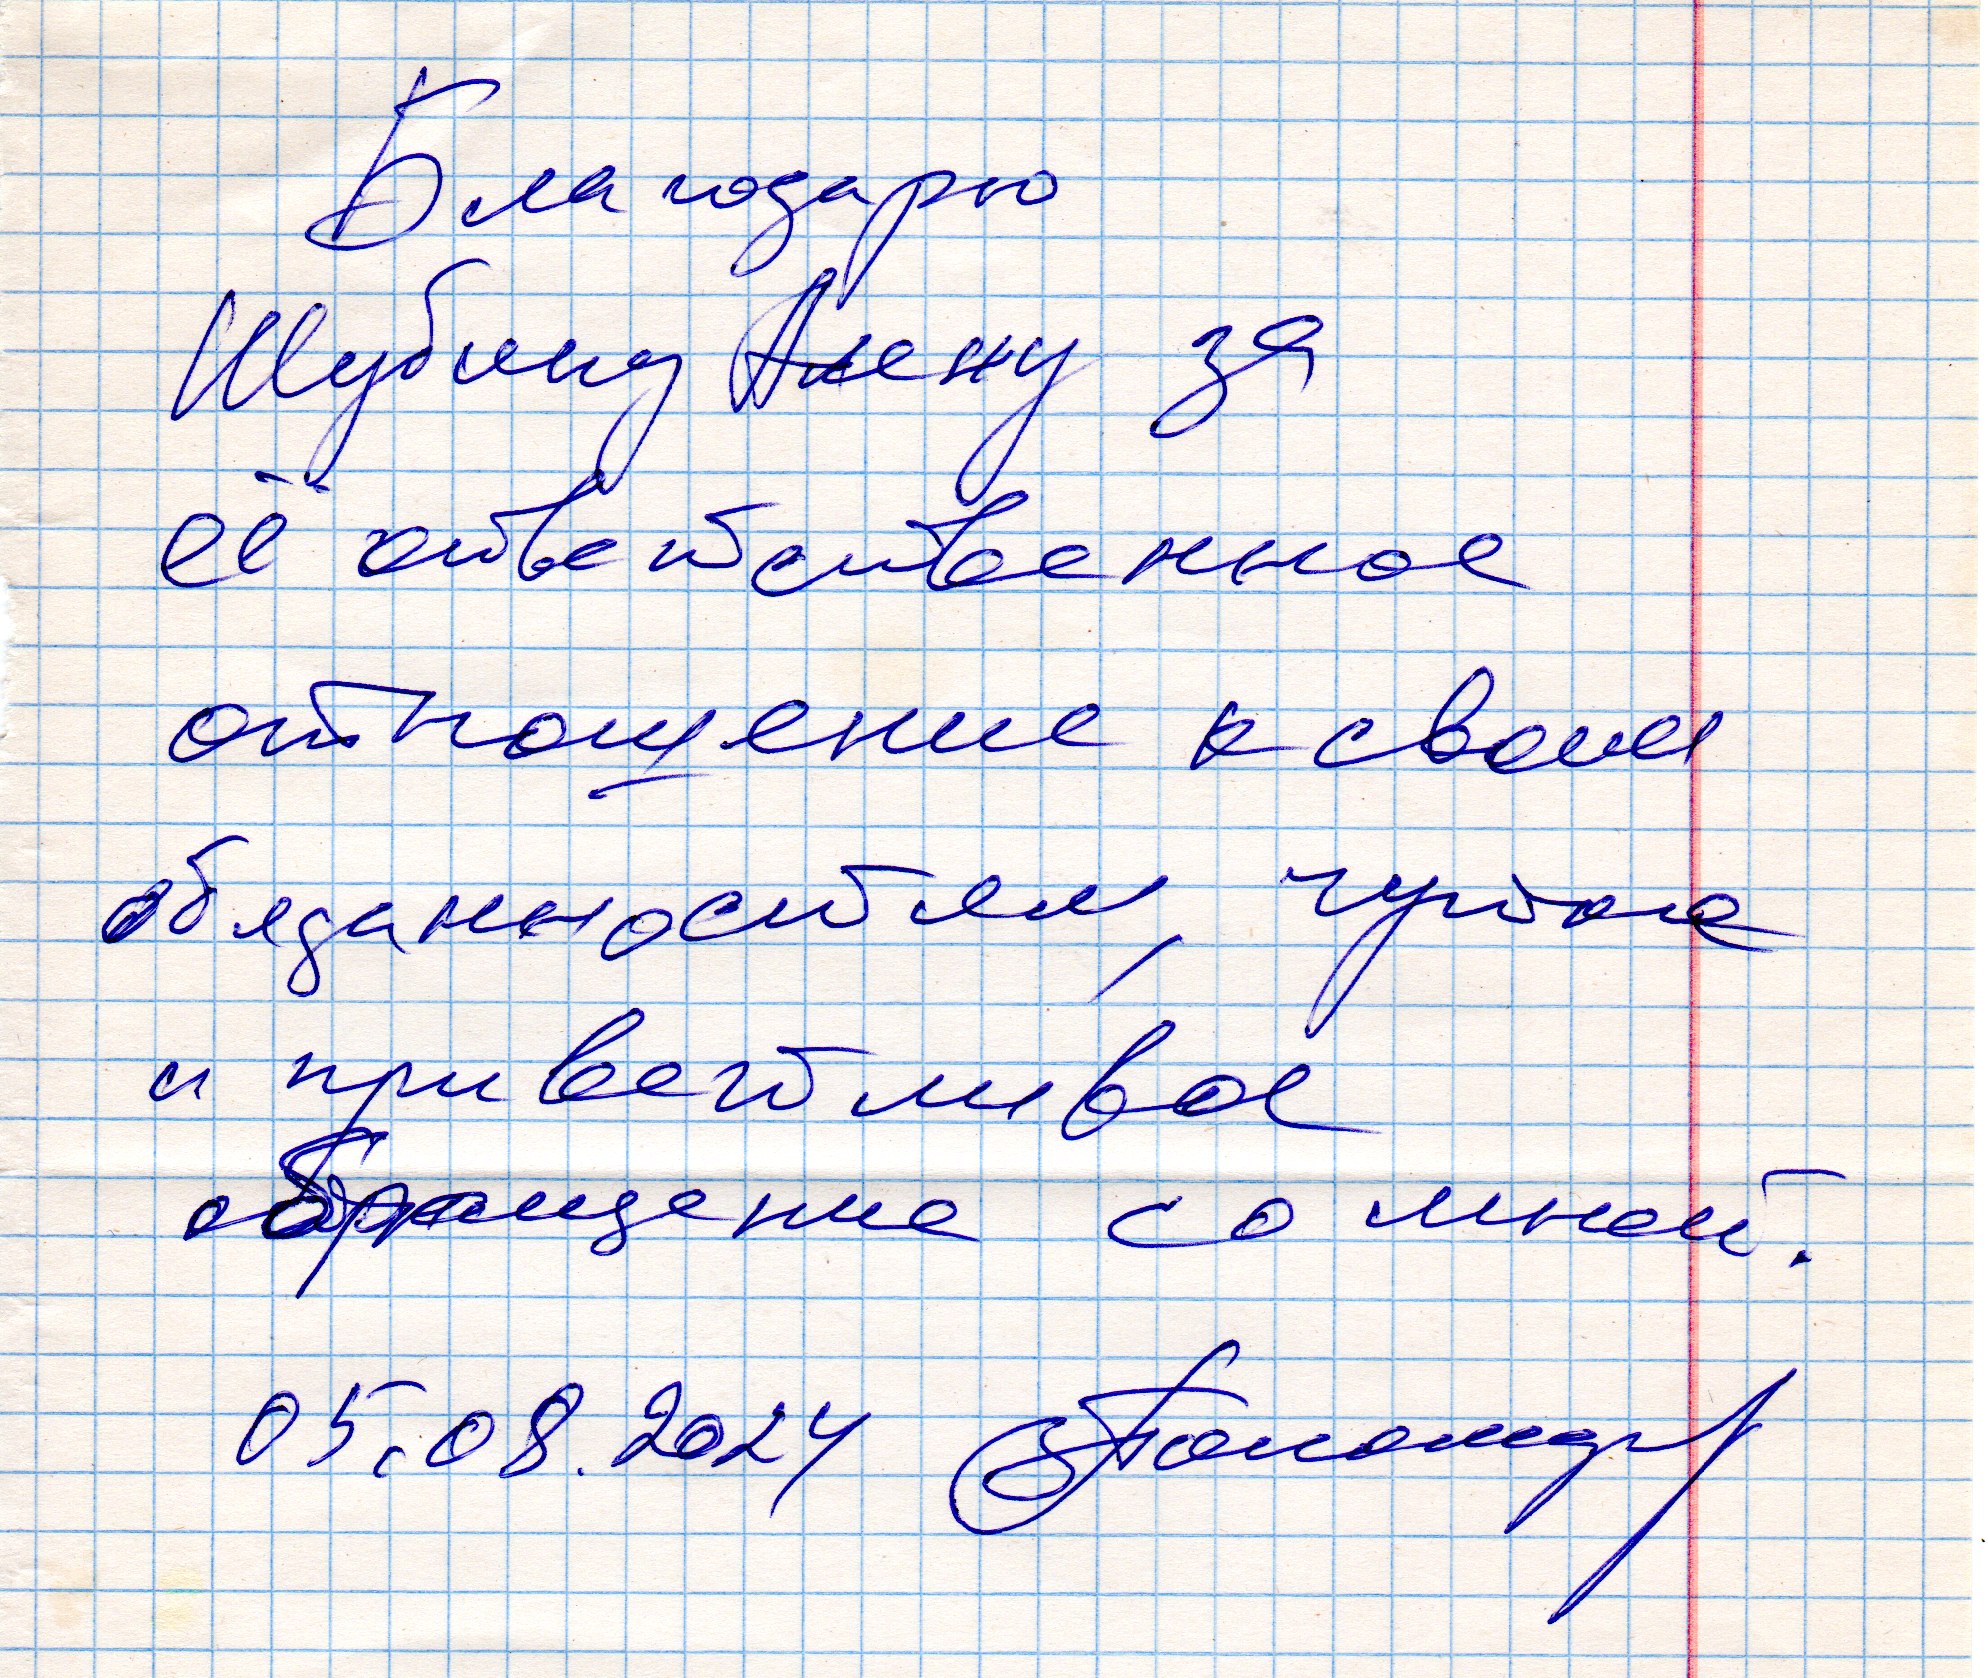 Благодарю
Шубину Алену за
её ответственное
отношение к своим
обязанностям, чуткое
и приветливое
обращение со мной.
05.08.2024